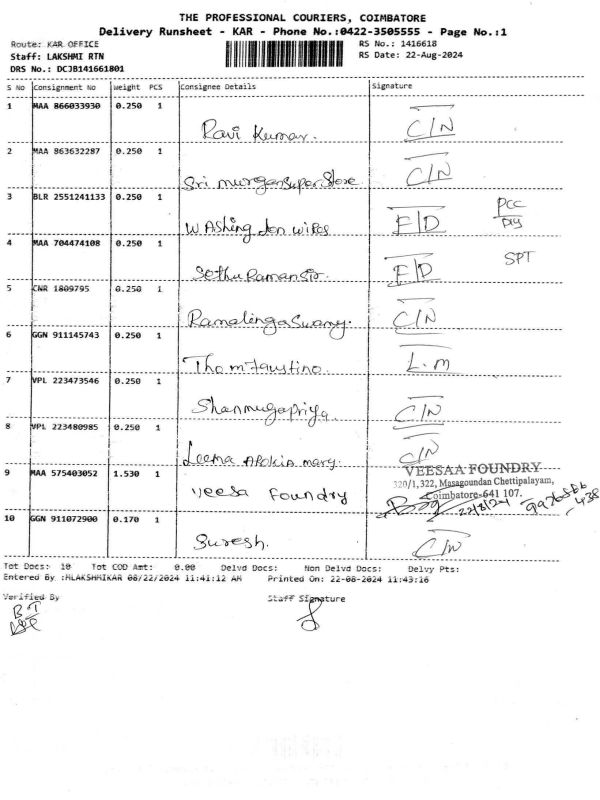 THE PROFESSIONAL COURIERS, COIMBATORE
Delivery Runsheet - KAR - Phone No.:0422-3505555 - Page No.:1
Route: KAR OFFICE RS No.: 1416618
Staff: LAKSHMI RTN RS Date: 22-Aug-2024
DRS No.: DCJB141661801
S No Consignment No Weight PCS Consignee Details Signature
1 MAA 866033930 0.250 1
Ravi Kumar. C/N
2 MAA 863632287 0.250 1
Sri murgan super Store C/N
3 BLR 2551241133 0.250 1 PCC
WAShing ton wires F/D
4 MAA 704474108 0.250 1 SPT
Sethu Raman sir. F/D
5 CNR 1809795 0.250 1
Ramalinga Swamy. C/N
6 GGN 911145743 0.250 1
Thom faustino. L.m
7 VPL 223473546 0.250 1
Shanmugapriya. C/N
8 VPL 223480985 0.250 1
Leema ARokia mary. C/N
9 MAA 575403052 1.530 1 VEESAA FOUNDRY
320/1,322, Masagoundan Chettipalayam,
Veesa Foundry Coimbatore-641 107.
22/8/24
10 GGN 911072900 0.170 1
Suresh. C/N
Tot Docs: 10 Tot COD Amt: 0.00 Delvd Docs: Non Delvd Docs: Delvy Pts:
Entered By :MLAKSHMIKAR 08/22/2024 11:41:12 AM Printed On: 22-08-2024 11:43:16
Verified By Staff Signature